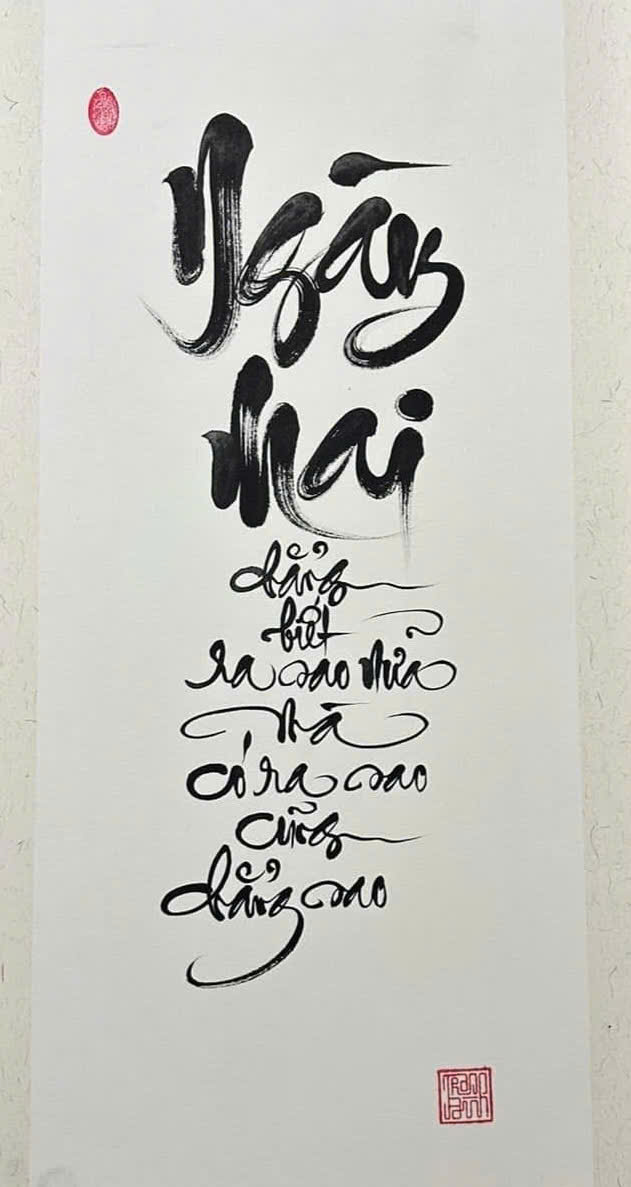 Ngày
mai
chẳng
biết
ra sao nữa
mà
có ra sao
cũng
chẳng sao